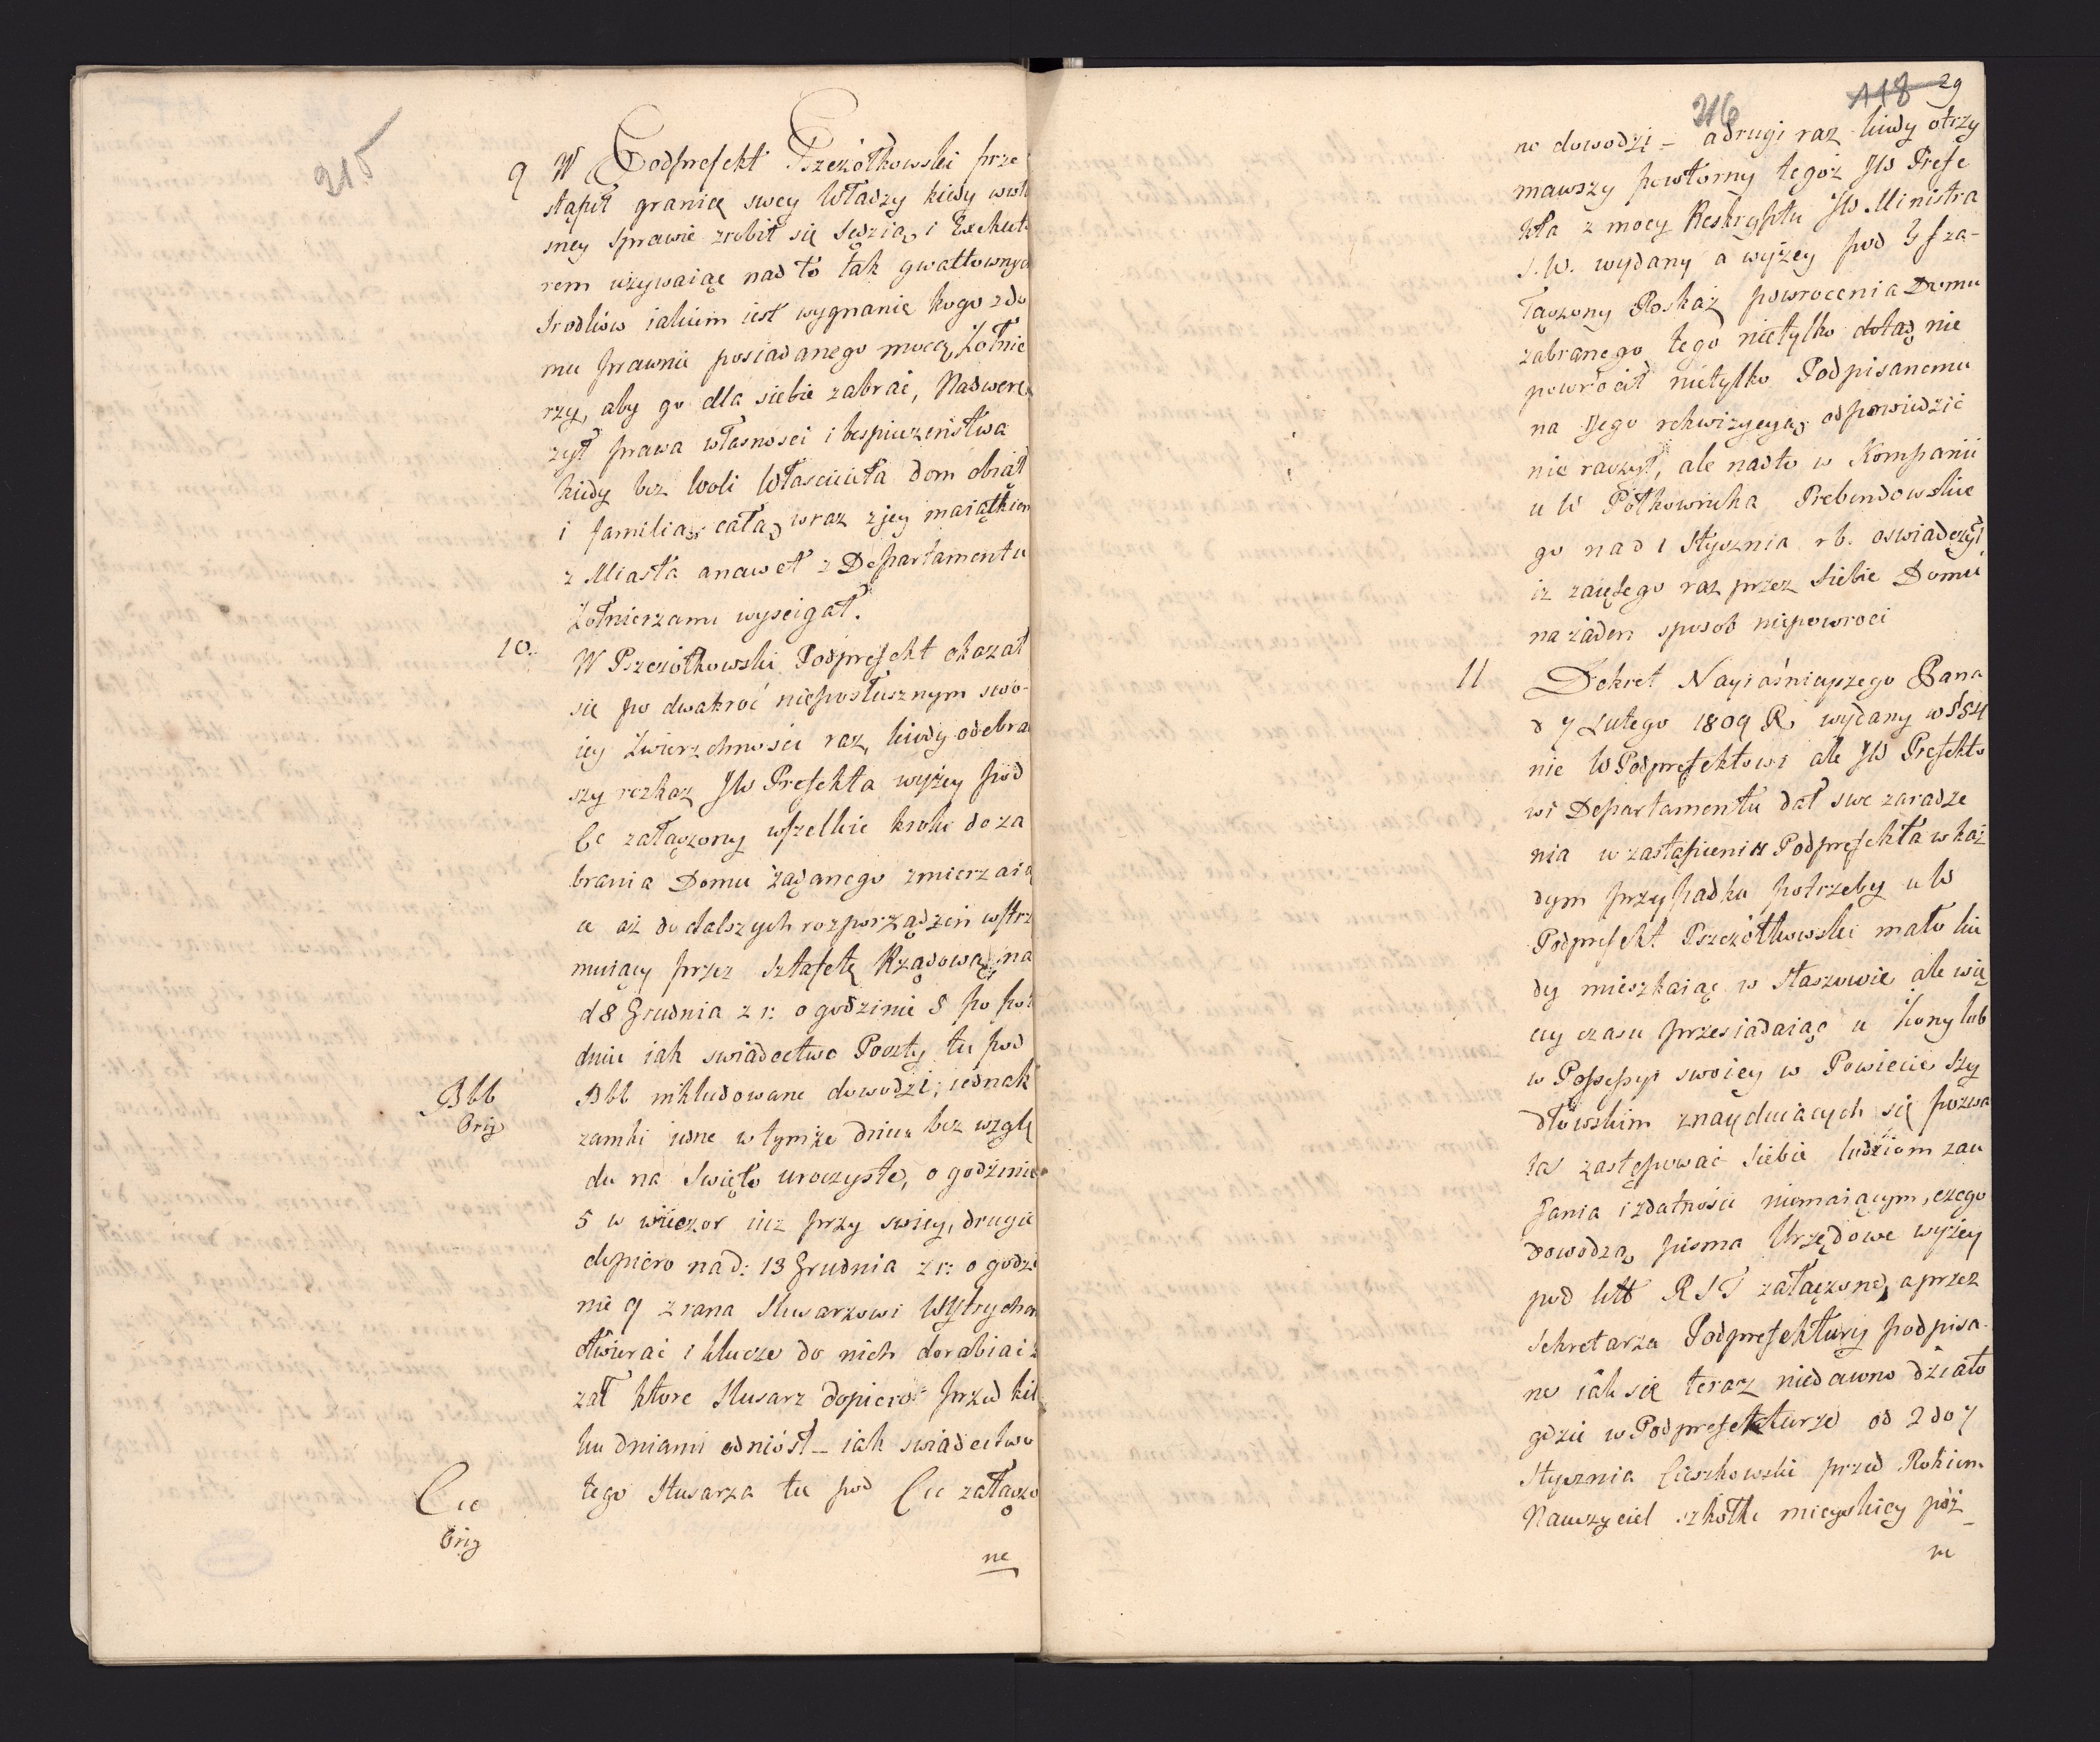 215
9 W Podprefekt Pszczółkowski prze
stąpił granicę swey Władzy kiedy wwła
sney Sprawie zrobił się Sędzią i Exekuto
rem używaiąc nad to tak gwałtownych
srodków iakiem iest wygnanie kogo z do
mu prawnie posiadanego mocą Żołnie
rzy, aby go dla siebie zabrać, Nadwerę
żył prawa własnosci i bespieczeństwa
kiedy bez Woli Własciciela dom obiął
i familią całą wraz z jey maiątkiem
z Miasta a nawet z Departamentu
Żołnierzami wyscigał.
10. W Pszczółkowski Podprefekt okazał
się po dwakroć nieposłusznym swo-
iey Zwierzchnosci raz, kiedy odebra
szy rozkaz JW Prefekta wyżey pod
załączony wszelkie kroki do za
brania Domu żądanego zmierzaią
a aż do dalszych rozporządzeń wstrz
muiący przez Sztafetę Rządową na
d 8 Grudnia z r: o godzinie 8 po poł
dniu iak swiadectwo Poczty tu pod
Bbb inkludowane dowodzi; jednak
Bbb
Orig
zamki jedne w tymże dniu bez wzglę
du na Swięto uroczyste, o godzinie
5 w wieczor iuz przy swiey, drugie
dopiero na d: 13 Grudnia z r: o godzi
nie 9 z rana Slusarzowi Wytrychem
otwierać i klucze do nich dorabiać
zał ktore Slusarz dopiero przed kil
ku dniami odniósł – iak swiadectwo
tego Slusarza tu pod Ccc załączo
Ccc
Orig
ne
216 118 29
no dowodzi – a drugi raz kiedy otrzy
mawszy powtorny tegoż JW Prefe
kta z mocy Reskryptu JW Ministra
S. W. wydany a wyżey pod za-
łączony Roskaz powrocenia Domu
zabranego tego nietylko dotąd nie
powrócił nietylko Podpisanemu
na Jego rekwizycyą odpowiedzić
nie raczył, ale nadto w Kompanii
u W Półkownika Prebendowskie
go na d 1 Stycznia r b. oswiadczył
iż zaiętego raz przez siebie Domu
na żaden sposob niepowroci
11 Dekret Nayiaśnieyszego Pana
d 7 Lutego 1809 R wydany w §§4
nie W Podprefektowi ale JW Prefekto
wi Departamentu dał swe zaradze
nia w zastąpieniu Podprefekta w każ
dym przypadku potrzeby a W
Podprefekt Pszczółkowski mało kie
dy mieszkaiąc w Staszowie ale wię
cey czasu przesiadaiąc u Żony lub
w Possessyi swoiey w Powiecie Szy
dłowskim znayduiących się pozwa
la zastępować Siebie ludziom zau
fania i zdatnosci niemaiącym, czego
dowodzą pisma Urzędowe wyżey
pod litt R S T załączone, a przez
Sekretarza Podprefektury podpisa-
ne iak się teraz niedawno działo
gdzie w Podprefekturze od 2 do 7
Stycznia Cieszkowski przed Rokiem
Nauczyciel szkołki mieyskiey póź
ni